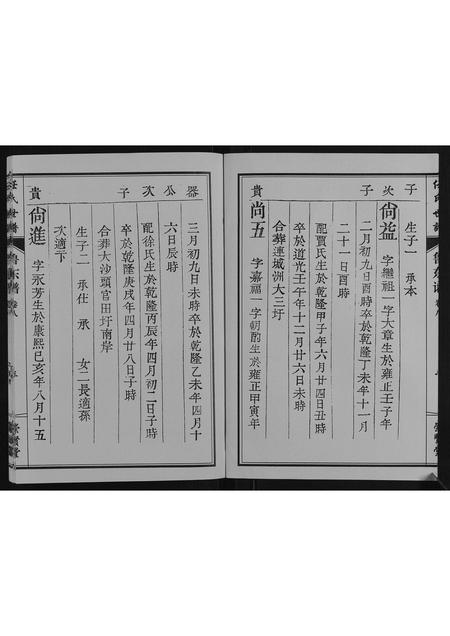 子
生子一 承本
次 尚益 字繼祖一字大章生於雍正壬子年
子
二月初九日酉時卒於乾隆丁未年十一月
二十一日酉時
配賈氏生於乾隆甲子年六月廿四日丑時
卒於道光壬午年十二月廿六日未時
合葬連城洲大三圩
貴 尚五 字嘉福一字朝酌生於雍正甲寅年
器
三月初九日未時卒於乾隆乙未年四月十
公
六日辰時
次
配徐氏生於乾隆丙辰年四月初二日子時
子
卒於乾隆庚戌年四月廿八日子時
合葬大沙頭官田圩南岸
生子二 承仕 承 女二長適孫
次適卞
貴 尚進 字永芳生於康熙己亥年八月十五